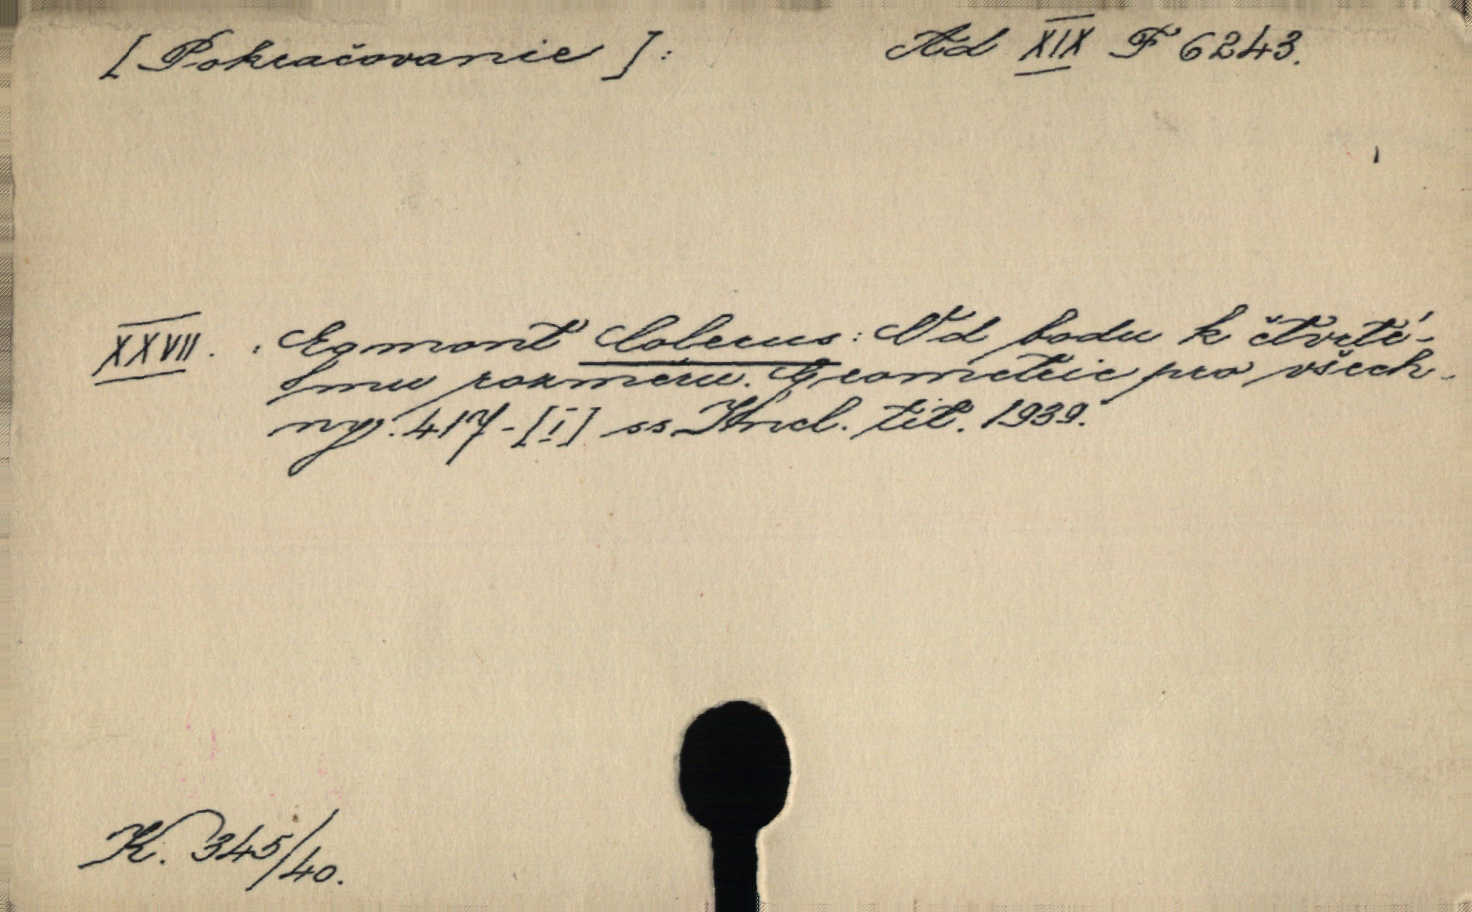 [Pokračovanie]: Ad XIX F 6243.
XXVII. : Egmont Colerus: Od bodu k čtvrté-
hmu rozměru. Geometrie pro všech-
ny. 417-[I] ss Incl. tit. 1939.
K. 345/40.